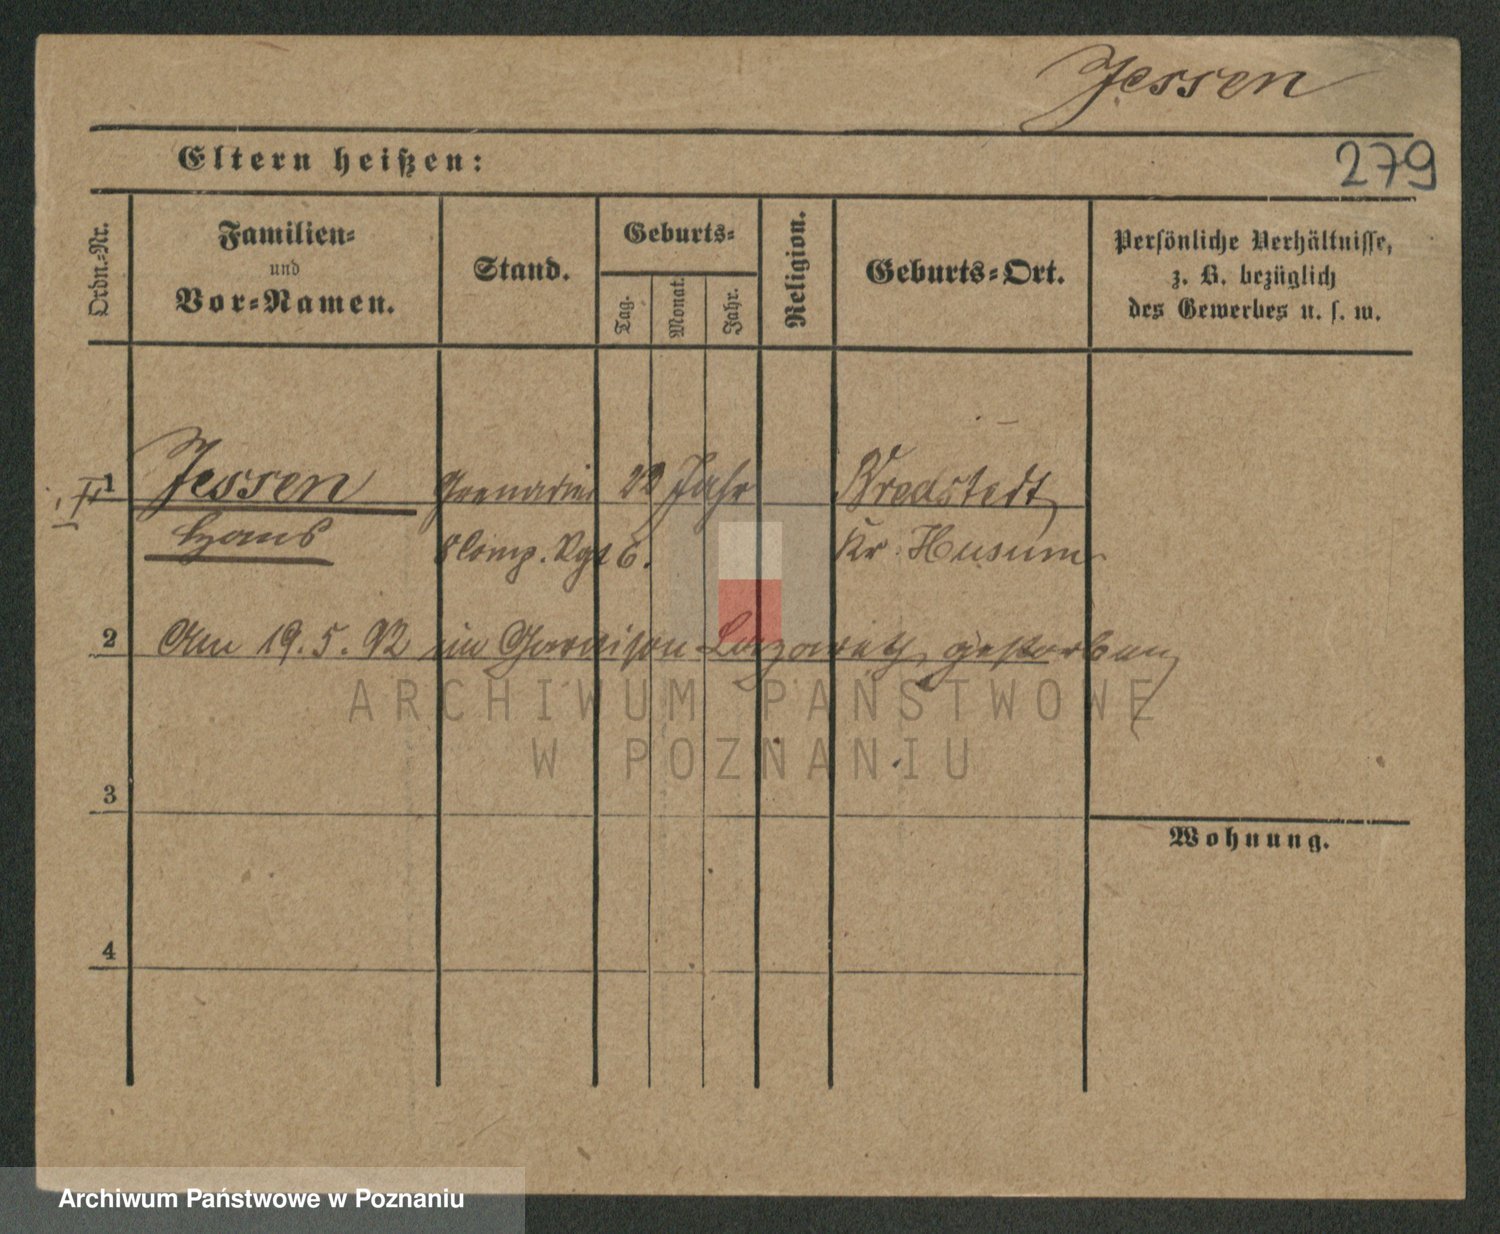 Jessen
279
Eltern heißen:
Ordn.-Nr.
Familien-
und
Vor-Namen.
Stand.
Geburts-
Tag.
Monat.
Jahr.
Religion.
Geburts-Ort.
Persönliche Verhältnisse,
z. B. bezüglich
des Gewerbes u. s. w.
1 Jessen Grenadier 22 Jahr Bredstedt
Hans 8 Comp. Rgt 6. Kr. Husum
2 Am 19.5.92 im Garnison-Lazareth gestorben
ARCHIWUM PAŃSTWOWE
W POZNANIU
3
Wohnung.
4
Archiwum Państwowe w Poznaniu